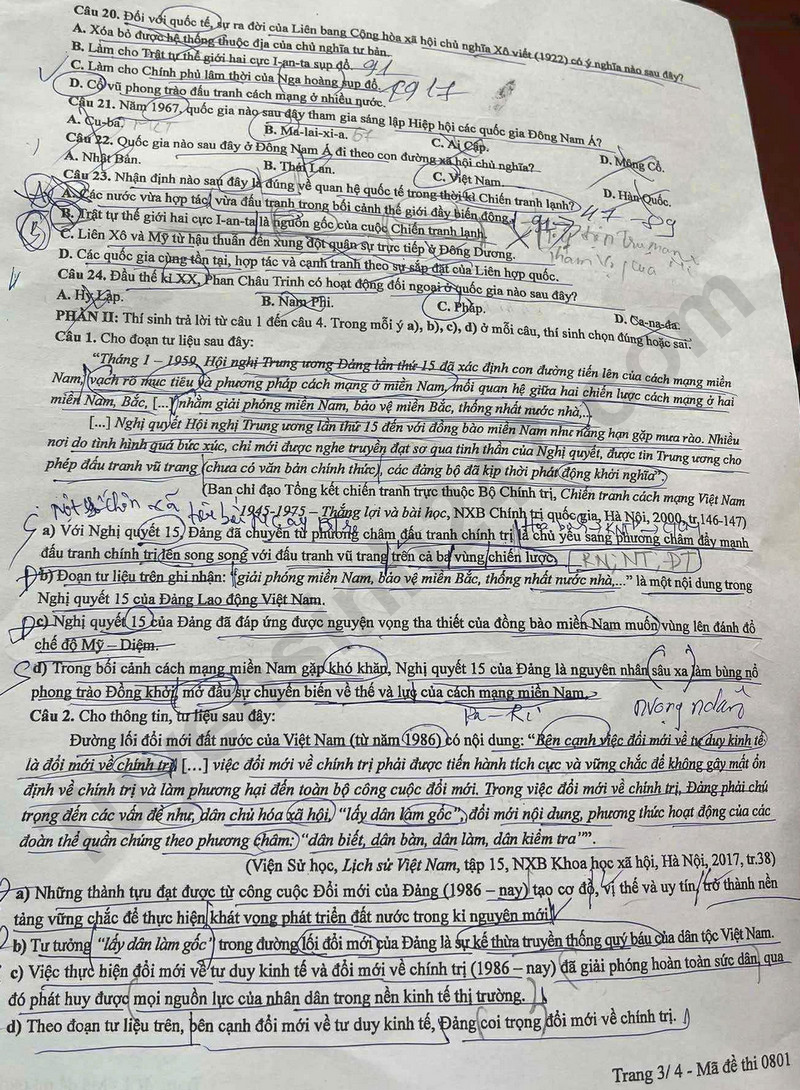 Câu 20. Đối với quốc tế, sự ra đời của Liên bang Cộng hòa xã hội chủ nghĩa Xô viết (1922) có ý nghĩa nào sau đây?
A. Xóa bỏ được hệ thống thuộc địa của chủ nghĩa tư bản.
B. Làm cho Trật tự thế giới hai cực I-an-ta sụp đổ. 91
C. Làm cho Chính phủ lâm thời của Nga hoàng sụp đổ. 1917
D. Cổ vũ phong trào đấu tranh cách mạng ở nhiều nước.
Câu 21. Năm 1967, quốc gia nào sau đây tham gia sáng lập Hiệp hội các quốc gia Đông Nam Á?
A. Cu-ba. B. Ma-lai-xi-a. 67 C. Ai Cập. D. Mông Cổ.
Câu 22. Quốc gia nào sau đây ở Đông Nam Á đi theo con đường xã hội chủ nghĩa?
A. Nhật Bản. B. Thái Lan. C. Việt Nam. D. Hàn Quốc.
Câu 23. Nhận định nào sau đây là đúng về quan hệ quốc tế trong thời kì Chiến tranh lạnh? 47 - 89
A. Các nước vừa hợp tác, vừa đấu tranh trong bối cảnh thế giới đầy biến động.
B. Trật tự thế giới hai cực I-an-ta là nguồn gốc của cuộc Chiến tranh lạnh.
C. Liên Xô và Mỹ từ hậu thuẫn đến xung đột quân sự trực tiếp ở Đông Dương.
D. Các quốc gia cùng tồn tại, hợp tác và cạnh tranh theo sự sắp đặt của Liên hợp quốc.
Câu 24. Đầu thế kỉ XX, Phan Châu Trinh có hoạt động đối ngoại ở quốc gia nào sau đây?
A. Hy Lạp. B. Nam Phi. C. Pháp. D. Ca-na-đa.
PHẦN II: Thí sinh trả lời từ câu 1 đến câu 4. Trong mỗi ý a), b), c), d) ở mỗi câu, thí sinh chọn đúng hoặc sai.
Câu 1. Cho đoạn tư liệu sau đây:
“Tháng 1 – 1959, Hội nghị Trung ương Đảng lần thứ 15 đã xác định con đường tiến lên của cách mạng miền
Nam, vạch rõ mục tiêu và phương pháp cách mạng ở miền Nam, mối quan hệ giữa hai chiến lược cách mạng ở hai
miền Nam, Bắc, [...] nhằm giải phóng miền Nam, bảo vệ miền Bắc, thống nhất nước nhà,..
[...] Nghị quyết Hội nghị Trung ương lần thứ 15 đến với đồng bào miền Nam như nắng hạn gặp mưa rào. Nhiều
nơi do tình hình quá bức xúc, chỉ mới được nghe truyền đạt sơ qua tinh thần của Nghị quyết, được tin Trung ương cho
phép đấu tranh vũ trang (chưa có văn bản chính thức), các đảng bộ đã kịp thời phát động khởi nghĩa”.
(Ban chỉ đạo Tổng kết chiến tranh trực thuộc Bộ Chính trị, Chiến tranh cách mạng Việt Nam
1945-1975 – Thắng lợi và bài học, NXB Chính trị quốc gia, Hà Nội, 2000, tr.146-147)
a) Với Nghị quyết 15, Đảng đã chuyển từ phương châm đấu tranh chính trị là chủ yếu sang phương châm đẩy mạnh
đấu tranh chính trị lên song song với đấu tranh vũ trang trên cả ba vùng chiến lược. RN, NT, ĐT
b) Đoạn tư liệu trên ghi nhận: “giải phóng miền Nam, bảo vệ miền Bắc, thống nhất nước nhà,...” là một nội dung trong
Nghị quyết 15 của Đảng Lao động Việt Nam.
c) Nghị quyết 15 của Đảng đã đáp ứng được nguyện vọng tha thiết của đồng bào miền Nam muốn vùng lên đánh đổ
chế độ Mỹ – Diệm.
d) Trong bối cảnh cách mạng miền Nam gặp khó khăn, Nghị quyết 15 của Đảng là nguyên nhân sâu xa làm bùng nổ
phong trào Đồng khởi, mở đầu sự chuyển biến về thế và lực của cách mạng miền Nam.
Câu 2. Cho thông tin, tư liệu sau đây:
Đường lối đổi mới đất nước của Việt Nam (từ năm 1986) có nội dung: “Bên cạnh việc đổi mới về tư duy kinh tế
là đổi mới về chính trị, [...] việc đổi mới về chính trị phải được tiến hành tích cực và vững chắc để không gây mất ổn
định về chính trị và làm phương hại đến toàn bộ công cuộc đổi mới. Trong việc đổi mới về chính trị, Đảng phải chú
trọng đến các vấn đề như, dân chủ hóa xã hội, “lấy dân làm gốc”, đổi mới nội dung, phương thức hoạt động của các
đoàn thể quần chúng theo phương châm: “dân biết, dân bàn, dân làm, dân kiểm tra””.
(Viện Sử học, Lịch sử Việt Nam, tập 15, NXB Khoa học xã hội, Hà Nội, 2017, tr.38)
a) Những thành tựu đạt được từ công cuộc Đổi mới của Đảng (1986 – nay) tạo cơ đồ, vị thế và uy tín, trở thành nền
tảng vững chắc để thực hiện khát vọng phát triển đất nước trong kỉ nguyên mới.
b) Tư tưởng “lấy dân làm gốc” trong đường lối đổi mới của Đảng là sự kế thừa truyền thống quý báu của dân tộc Việt Nam.
c) Việc thực hiện đổi mới về tư duy kinh tế và đổi mới về chính trị (1986 – nay) đã giải phóng hoàn toàn sức dân, qua
đó phát huy được mọi nguồn lực của nhân dân trong nền kinh tế thị trường.
d) Theo đoạn tư liệu trên, bên cạnh đổi mới về tư duy kinh tế, Đảng coi trọng đổi mới về chính trị.
Trang 3/ 4 - Mã đề thi 0801